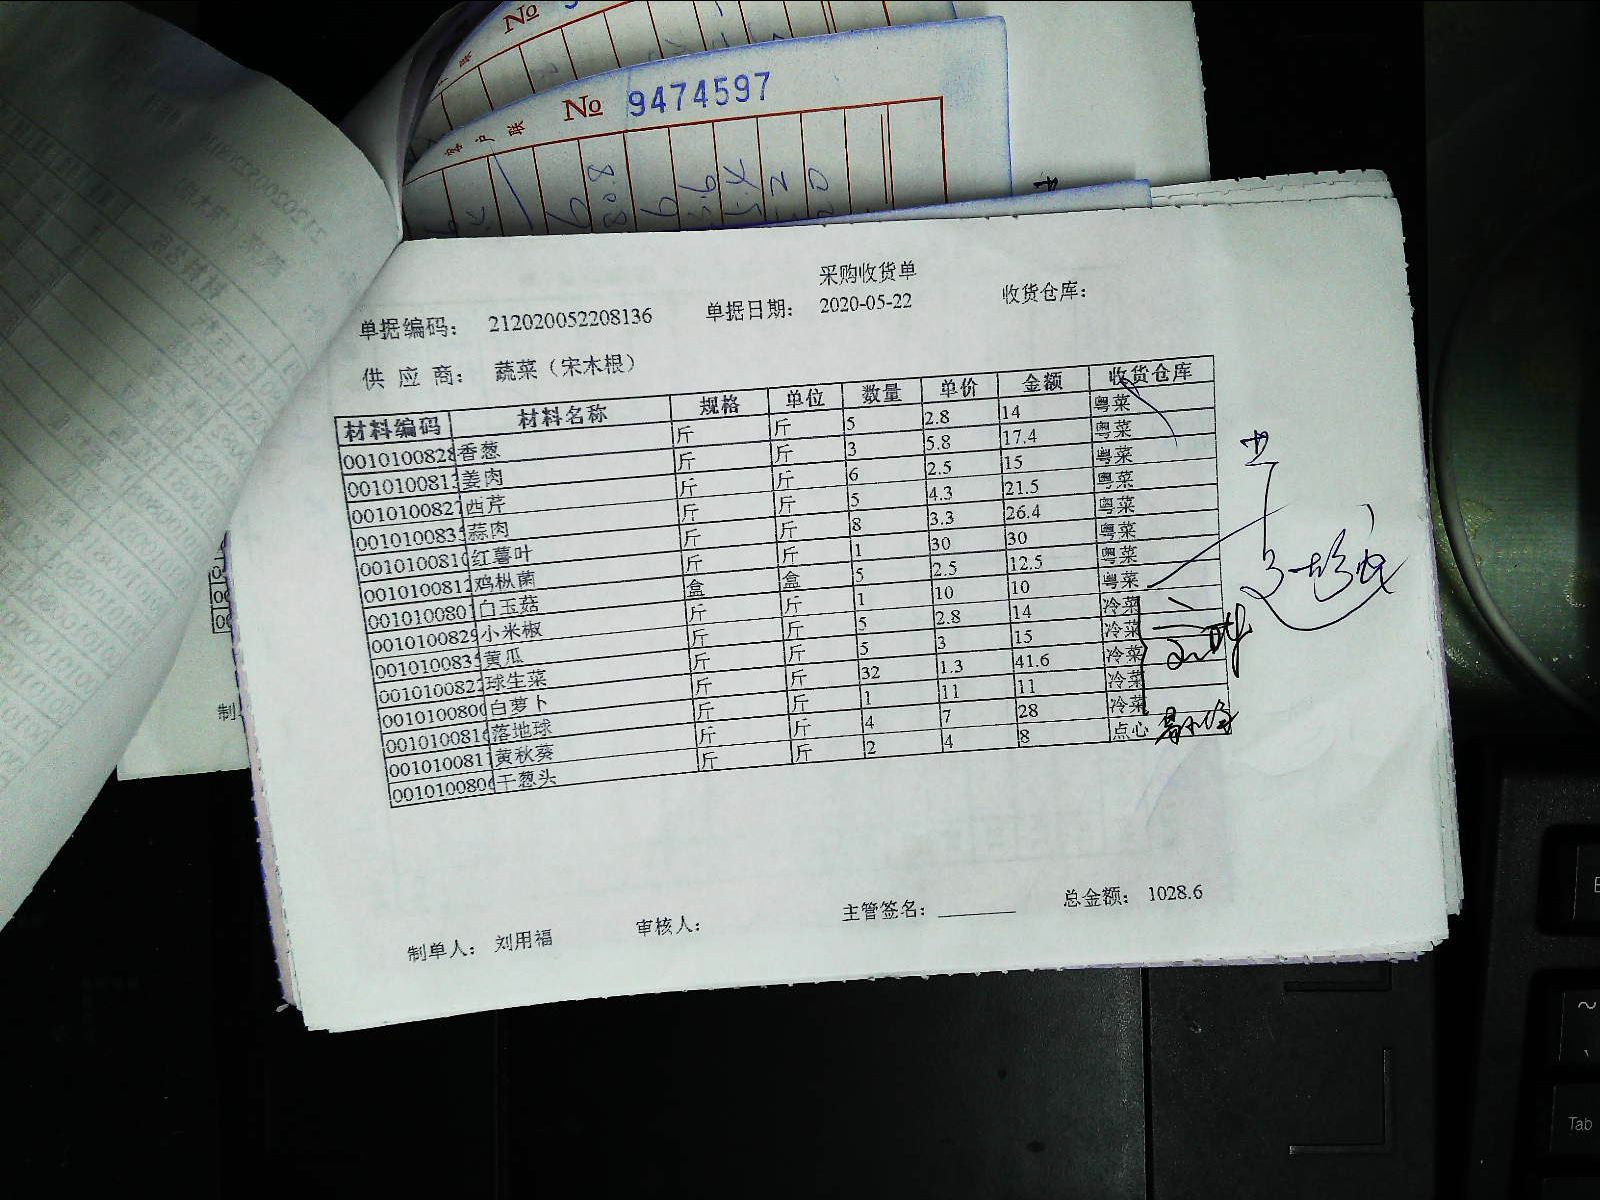 № 9474597
客户联
采购收货单
单据编码: 212020052208136 单据日期: 2020-05-22 收货仓库:
供应商: 蔬菜（宋木根）
材料编码 材料名称 规格 单位 数量 单价 金额 收货仓库
0010100828 香葱 斤 斤 5 2.8 14 粤菜
001010081 姜肉 斤 斤 3 5.8 17.4 粤菜
001010082 西芹 斤 斤 6 2.5 15 粤菜
001010083 蒜肉 斤 斤 5 4.3 21.5 粤菜
001010081 红薯叶 斤 斤 8 3.3 26.4 粤菜
001010081 鸡枞菌 斤 斤 1 30 30 粤菜
001010080 白玉菇 盒 盒 5 2.5 12.5 粤菜
001010082 小米椒 斤 斤 1 10 10 粤菜
001010083 黄瓜 斤 斤 5 2.8 14 冷菜
001010082 球生菜 斤 斤 5 3 15 冷菜
001010080 白萝卜 斤 斤 32 1.3 41.6 冷菜
001010081 落地球 斤 斤 1 11 11 冷菜
001010081 黄秋葵 斤 斤 4 7 28 冷菜
001010080 干葱头 斤 斤 2 4 8 点心
制单人: 刘用福 审核人: 主管签名: 总金额: 1028.6
Tab